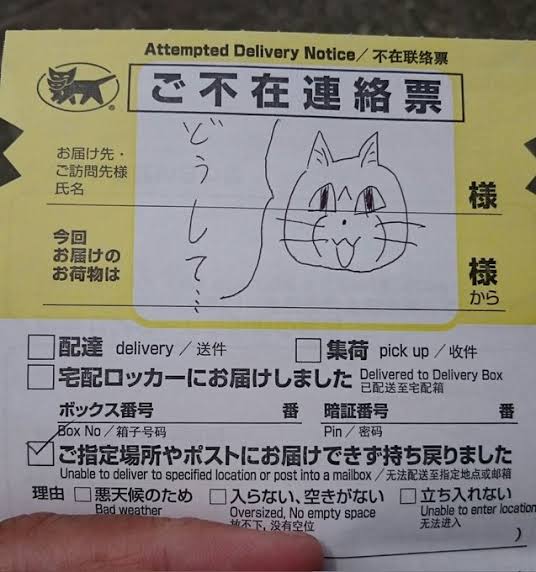 Attempted Delivery Notice／不在联络票
ご不在連絡票
お届け先・
ご訪問先様
氏名
様
どうして…
今回
お届けの
お荷物は
様
から
配達 delivery／送件
集荷 pick up／收件
宅配ロッカーにお届けしました Delivered to Delivery Box
已配送至宅配箱
ボックス番号 番 暗証番号 番
Box No／箱子号码 Pin／密码
ご指定場所やポストにお届けできず持ち戻りました
Unable to deliver to specified location or post into a mailbox／无法配送至指定地点或邮箱
理由 悪天候のため 入らない、空きがない 立ち入れない
Bad weather Oversized, No empty space Unable to enter location
放不下,没有空位 无法进入
)